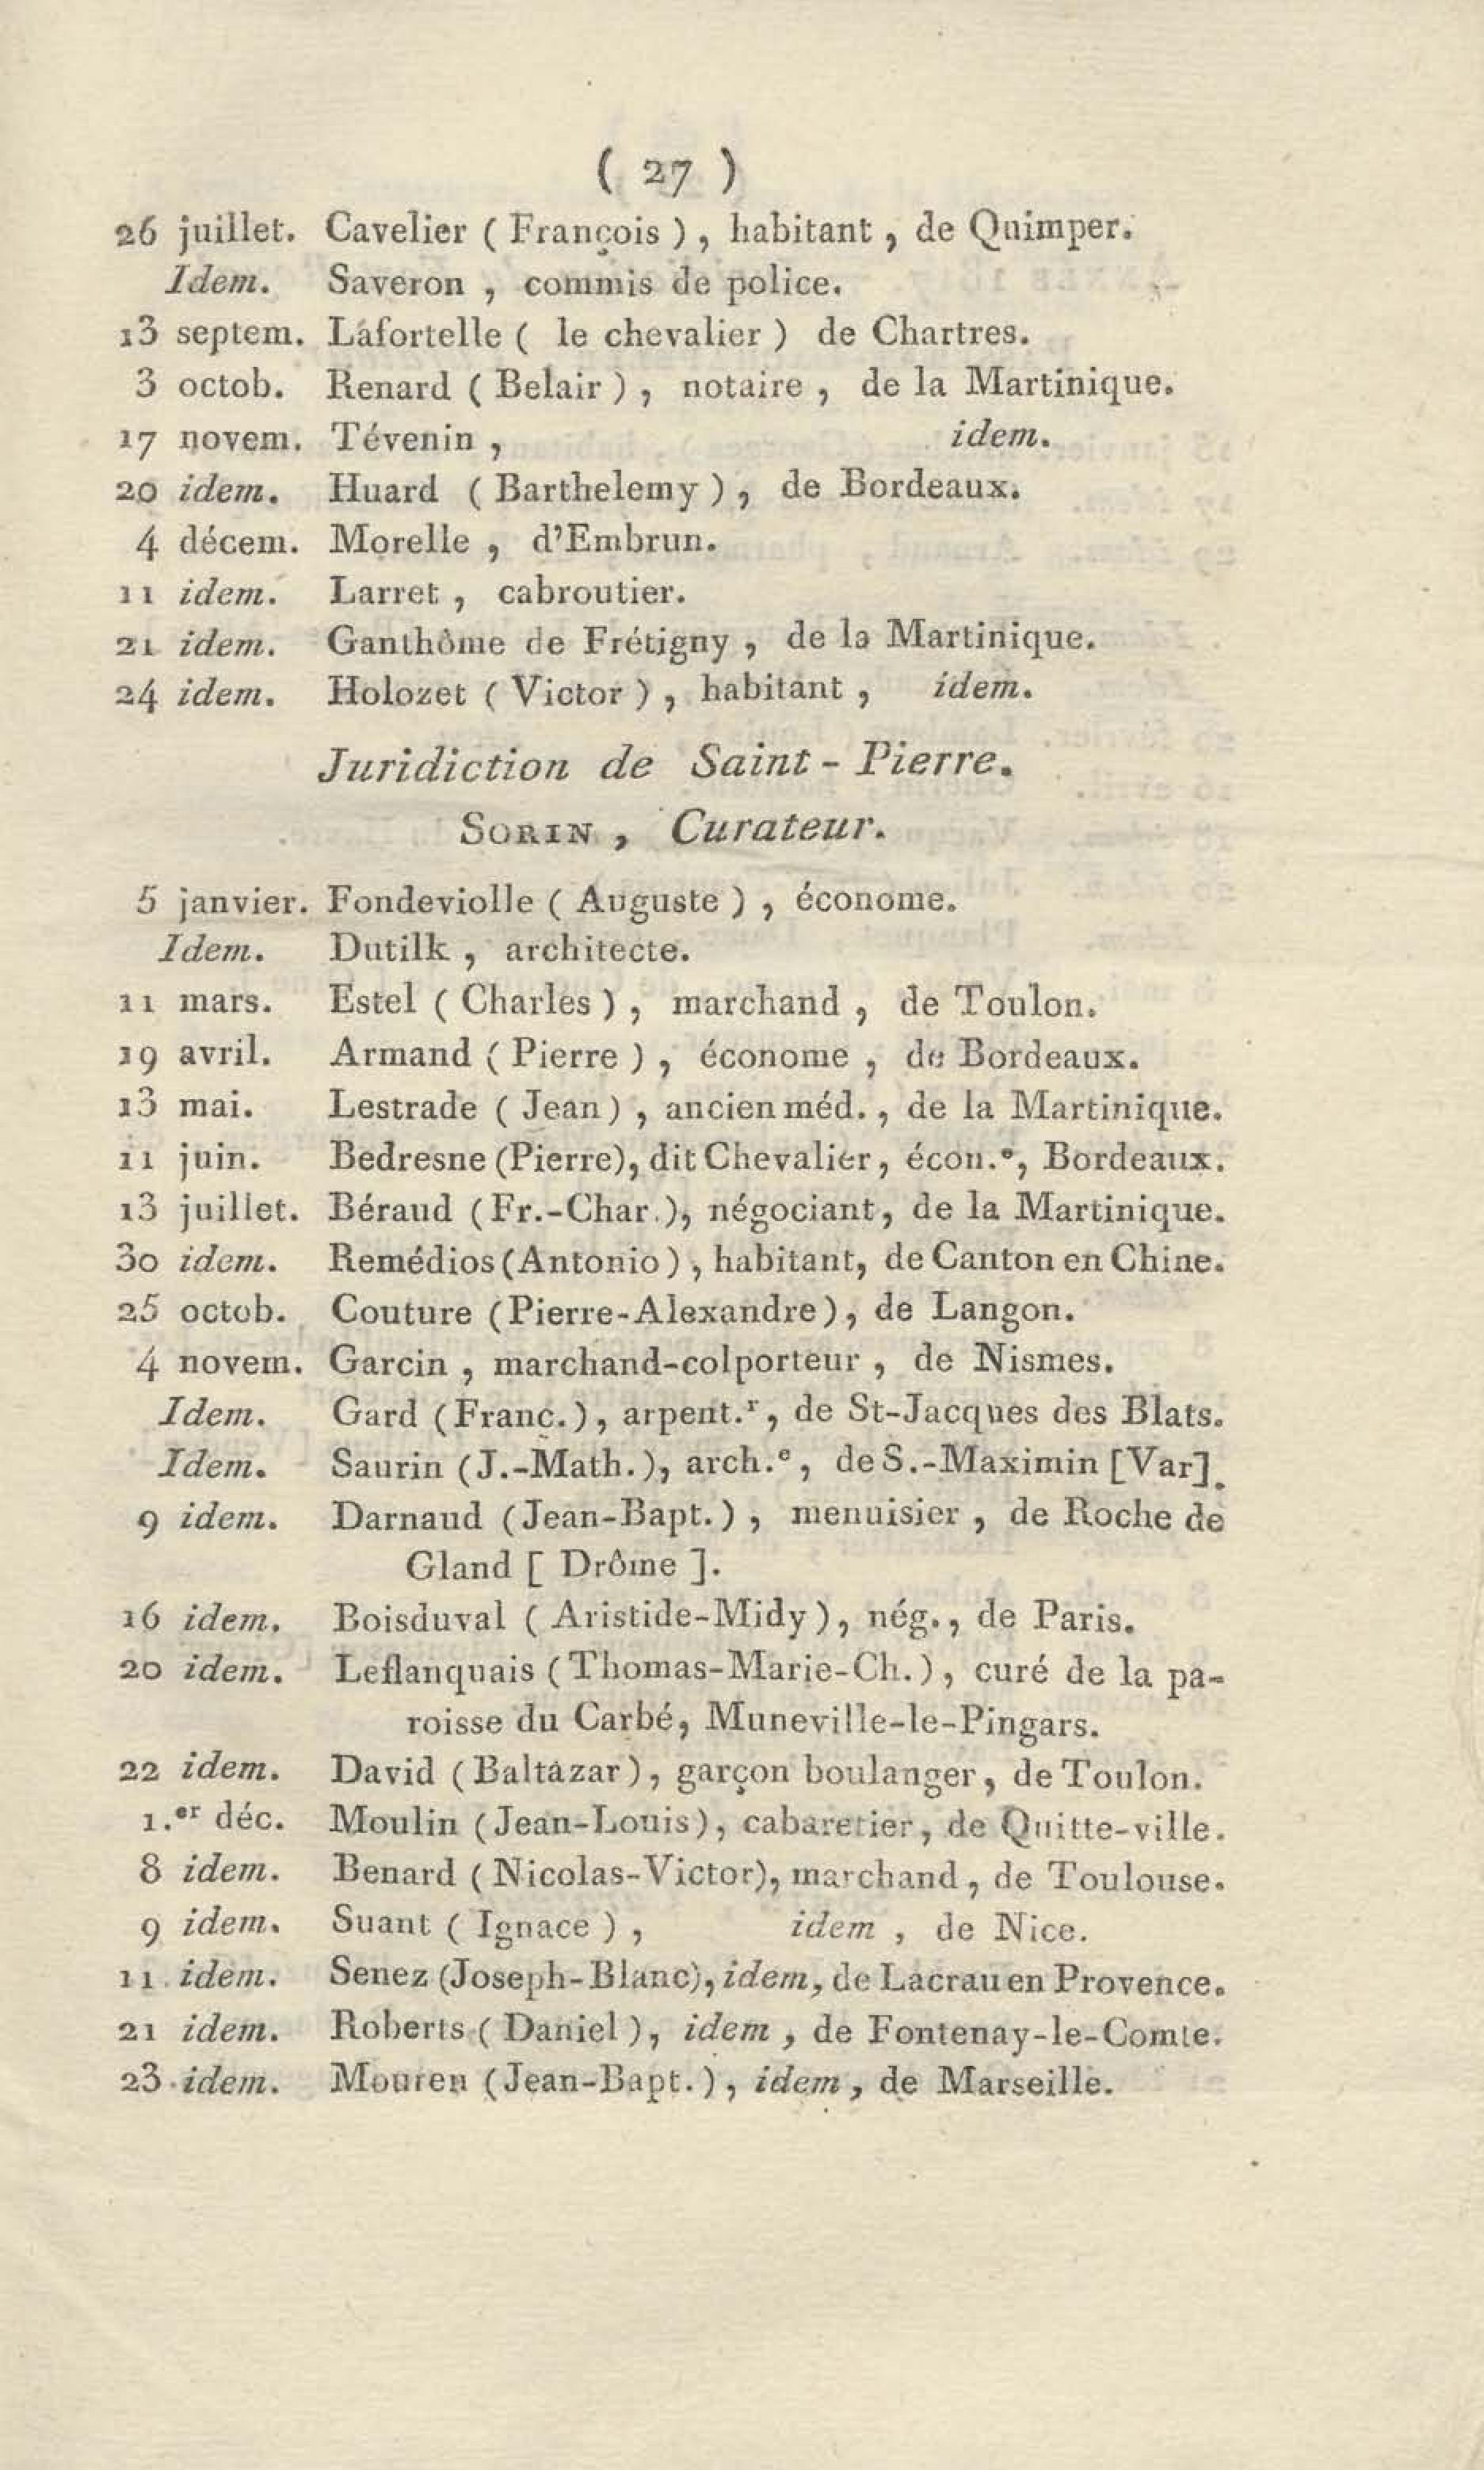 ( 27 )
26 juillet. Cavelier ( François ) , habitant , de Quimper.
Idem. Saveron , commis de police.
13 septem. Lafortelle ( le chevalier ) de Chartres.
3 octob. Renard ( Belair ) , notaire , de la Martinique.
17 novem. Tévenin , idem.
20 idem. Huard ( Barthelemy ) , de Bordeaux.
4 décem. Morelle , d'Embrun.
11 idem. Larret , cabroutier.
21 idem. Ganthôme de Frétigny , de la Martinique.
24 idem. Holozet ( Victor ) , habitant , idem.
Juridiction de Saint - Pierre.
SORIN , Curateur.
5 janvier. Fondeviolle ( Auguste ) , économe.
Idem. Dutilk , architecte.
11 mars. Estel ( Charles ) , marchand , de Toulon.
19 avril. Armand ( Pierre ) , économe , de Bordeaux.
13 mai. Lestrade ( Jean ) , ancien méd. , de la Martinique.
11 juin. Bedresne (Pierre), dit Chevalier, écon.e, Bordeaux.
13 juillet. Béraud (Fr.-Char.), négociant, de la Martinique.
30 idem. Remédios (Antonio) , habitant, de Canton en Chine.
25 octob. Couture (Pierre-Alexandre), de Langon.
4 novem. Garcin , marchand-colporteur , de Nismes.
Idem. Gard (Franç.), arpent.r, de St-Jacques des Blats.
Idem. Saurin (J.-Math.), arch.e, de S.-Maximin [Var].
9 idem. Darnaud (Jean-Bapt.) , menuisier , de Roche de
Gland [ Drôme ].
16 idem. Boisduval ( Aristide-Midy ), nég., de Paris.
20 idem. Leflanquais (Thomas-Marie-Ch.), curé de la pa-
roisse du Carbé, Muneville-le-Pingars.
22 idem. David (Baltazar), garçon boulanger, de Toulon.
1.er déc. Moulin (Jean-Louis), cabaretier, de Quitte-ville.
8 idem. Benard ( Nicolas-Victor), marchand, de Toulouse.
9 idem. Suant ( Ignace ) , idem , de Nice.
11 idem. Senez (Joseph-Blanc), idem, de Lacrau en Provence.
21 idem. Roberts ( Daniel ), idem , de Fontenay-le-Comte.
23 idem. Mouren (Jean-Bapt.), idem, de Marseille.